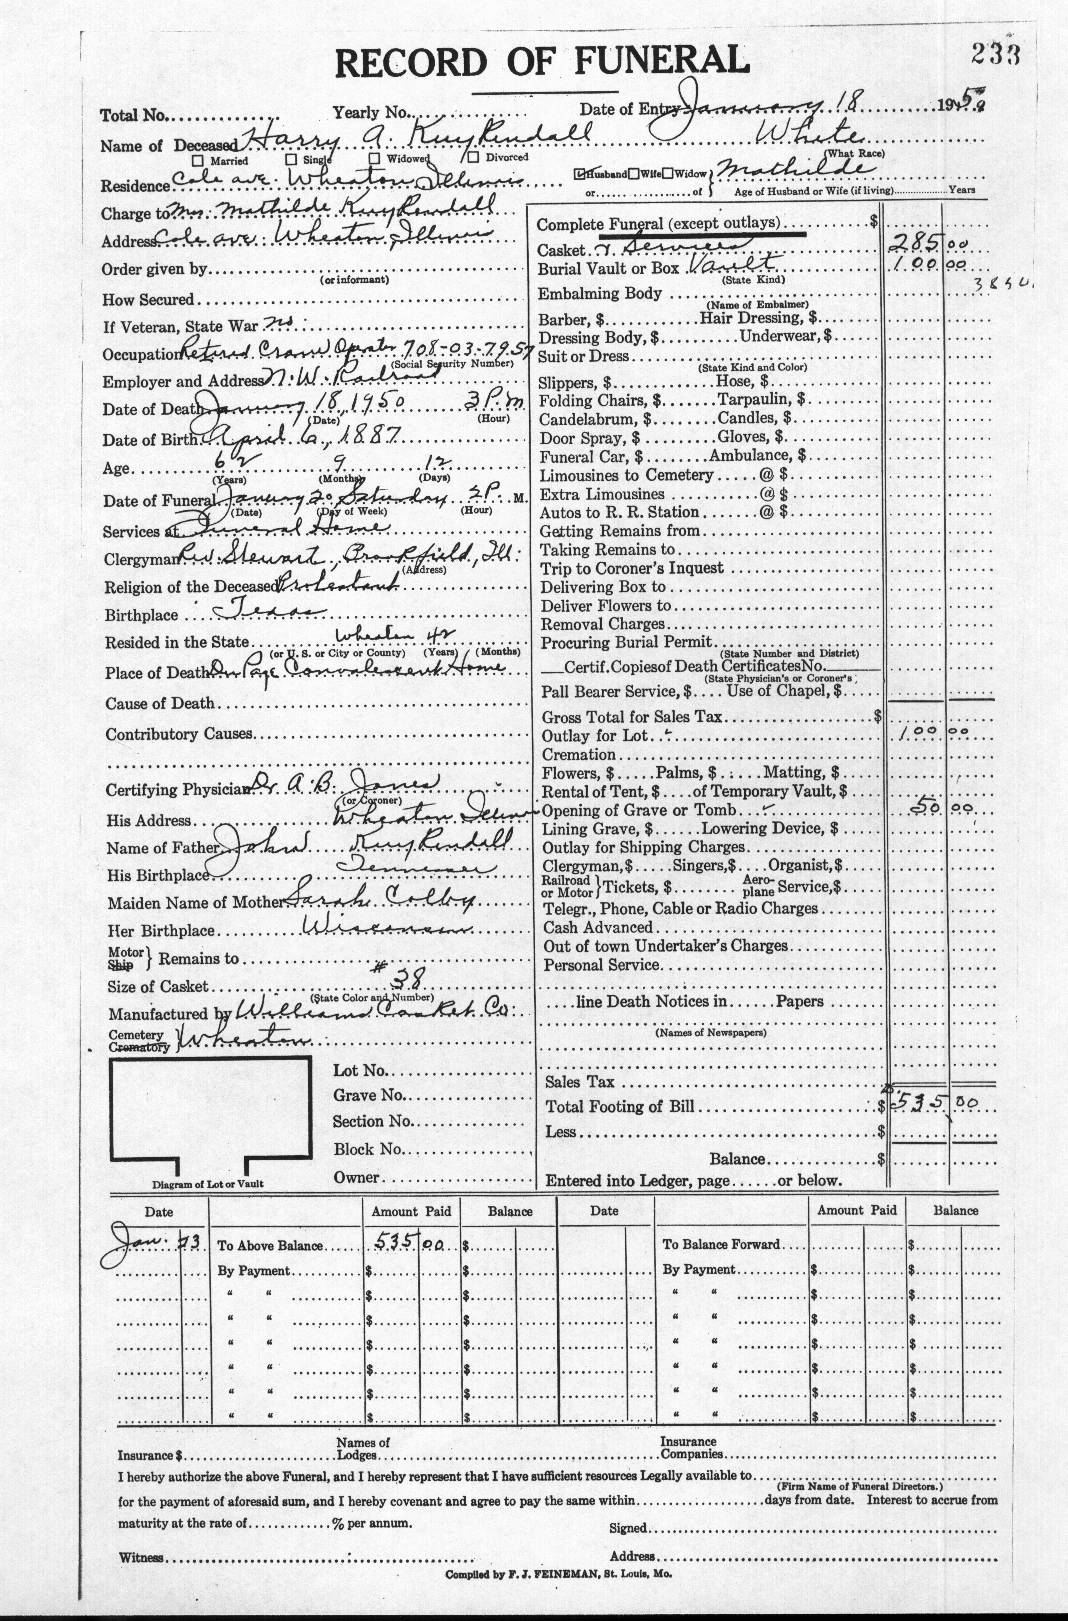 233
RECORD OF FUNERAL
Total No. Yearly No. Date of Entry January 18 1950
Name of Deceased Harry A. KuyKendall White
Married Single Widowed Divorced (What Race)
Residence Cole ave. Wheaton Illinois Husband Wife Widow or of } Mathilde
Age of Husband or Wife (if living) Years
Charge to Mrs. Mathilde KuyKendall
Address Cole ave. Wheaton, Illinois
Order given by
(or informant)
How Secured
If Veteran, State War no
Occupation Retired Crane Operator 708-03-7957
(Social Security Number)
Employer and Address N.W. Railroad
Date of Death January 18, 1950 3 P.m
(Date) (Hour)
Date of Birth April 6, 1887
Age 62 9 12
(Years) (Months) (Days)
Date of Funeral January 20 Saturday 2 P. M.
(Date) (Day of Week) (Hour)
Services at Funeral Home
Clergyman Rev. Stewart, Brookfield, Ill.
(Address)
Religion of the Deceased Protestant
Birthplace Texas
Resided in the State Wheaton 42
(or U. S. or City or County) (Years) (Months)
Place of Death Du Page Convalescent Home
Cause of Death
Contributory Causes
Certifying Physician Dr A. B. Jones
(or Coroner)
His Address Wheaton Illinois
Name of Father John KuyKendall
His Birthplace Tennessee
Maiden Name of Mother Sarah Colby
Her Birthplace Wisconsin
Motor Ship } Remains to
Size of Casket #38
(State Color and Number)
Manufactured by Williams Casket Co.
Cemetery Crematory } Wheaton
Lot No.
Grave No.
Section No.
Block No.
Owner
Diagram of Lot or Vault
Complete Funeral (except outlays) $
Casket & Services 285 00
Burial Vault or Box Vault 100 00
(State Kind)
Embalming Body
(Name of Embalmer)
Barber, $ Hair Dressing, $
Dressing Body, $ Underwear, $
Suit or Dress
(State Kind and Color)
Slippers, $ Hose, $
Folding Chairs, $ Tarpaulin, $
Candelabrum, $ Candles, $
Door Spray, $ Gloves, $
Funeral Car, $ Ambulance, $
Limousines to Cemetery @ $
Extra Limousines @ $
Autos to R. R. Station @ $
Getting Remains from
Taking Remains to
Trip to Coroner's Inquest
Delivering Box to
Deliver Flowers to
Removal Charges
Procuring Burial Permit
(State Number and District)
Certif. Copies of Death Certificates No.
(State Physician's or Coroner's)
Pall Bearer Service, $ Use of Chapel, $
Gross Total for Sales Tax $
Outlay for Lot 100 00
Cremation
Flowers, $ Palms, $ Matting, $
Rental of Tent, $ of Temporary Vault, $
Opening of Grave or Tomb 50 00
Lining Grave, $ Lowering Device, $
Outlay for Shipping Charges
Clergyman, $ Singers, $ Organist, $
Railroad or Motor } Tickets, $ Aeroplane Service, $
Telegr., Phone, Cable or Radio Charges
Cash Advanced
Out of town Undertaker's Charges
Personal Service
line Death Notices in Papers
(Names of Newspapers)
Sales Tax
Total Footing of Bill $ 535 00
Less $
Balance $
Entered into Ledger, page or below.
Date Amount Paid Balance Date Amount Paid Balance
Jan. 23 To Above Balance 535 00 $ To Balance Forward $
By Payment $ $ By Payment $ $
" " $ $ " " $ $
" " $ $ " " $ $
" " $ $ " " $ $
" " $ $ " " $ $
" " $ $ " " $ $
" " $ $ " " $ $
Insurance $ Names of Lodges Insurance Companies
I hereby authorize the above Funeral, and I hereby represent that I have sufficient resources Legally available to
(Firm Name of Funeral Directors.)
for the payment of aforesaid sum, and I hereby covenant and agree to pay the same within days from date. Interest to accrue from
maturity at the rate of % per annum. Signed
Witness Address
Compiled by F. J. FEINEMAN, St. Louis, Mo.